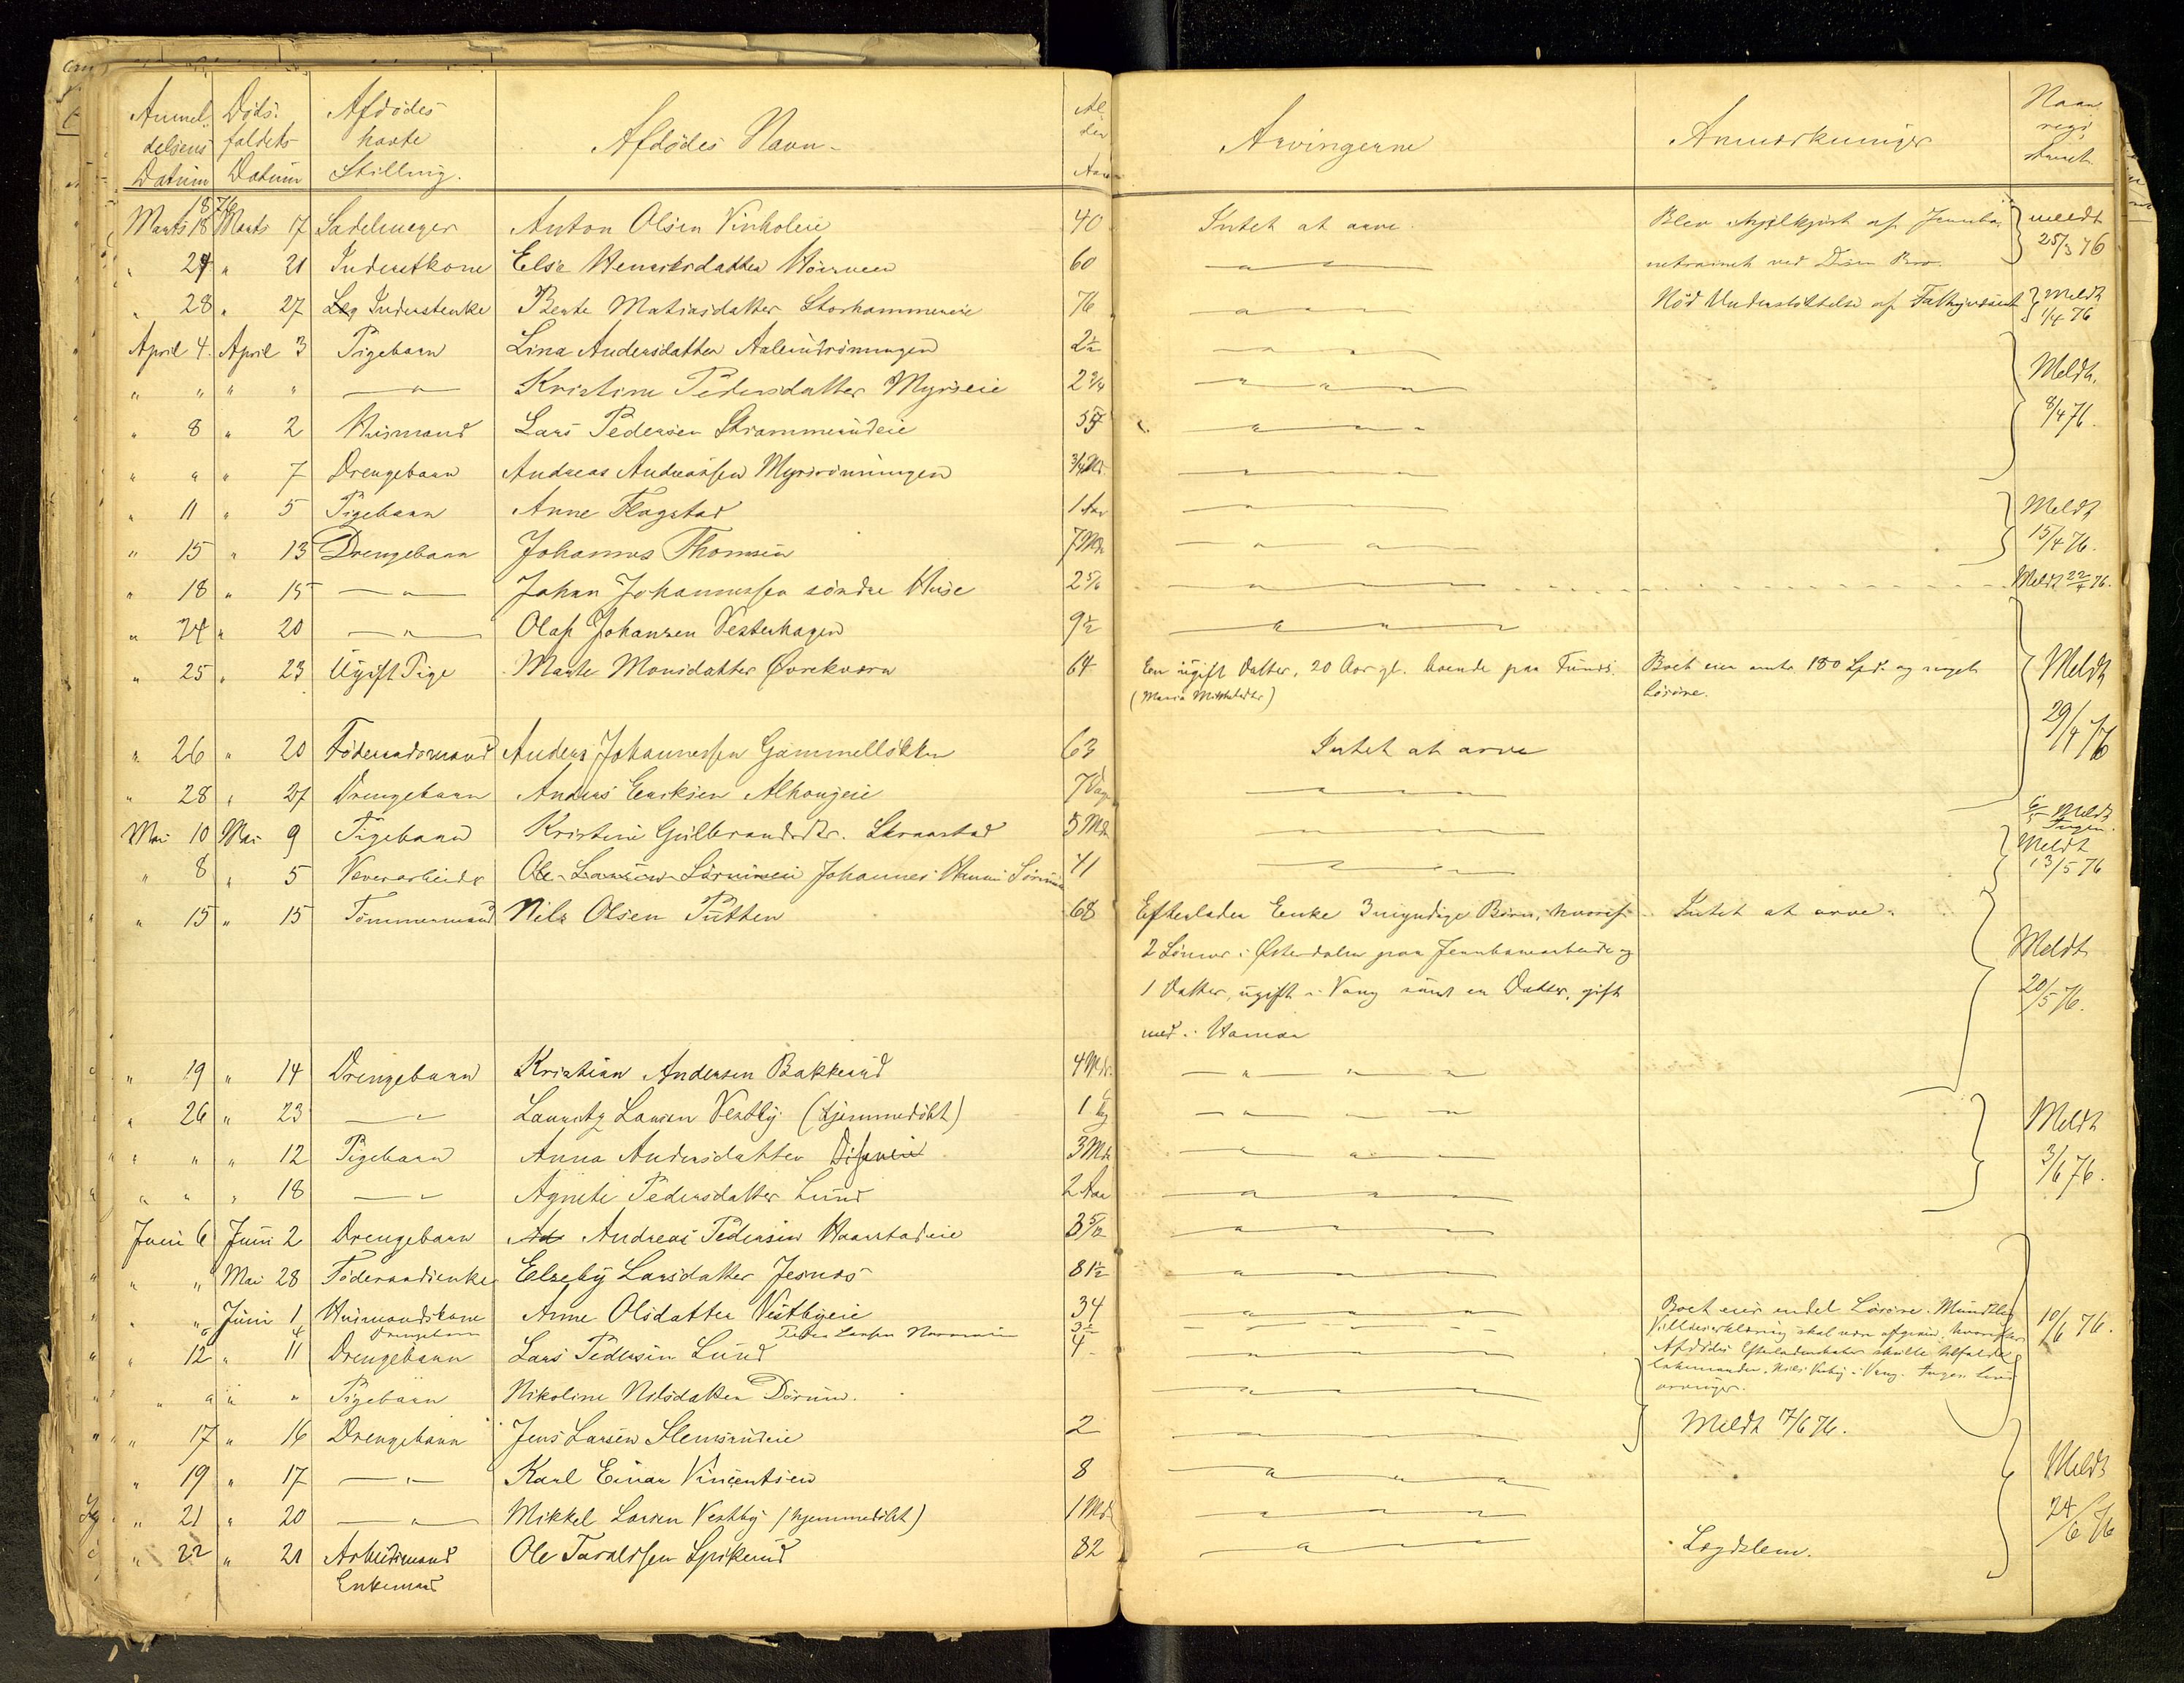 Anmeldelsens Datum | Dødsfaldets Datum | Afdødes havte Stilling. | Afdødes Navn | Alder Aar | Arvingerne | Anmærkninger | Naar registreret
1876
Marts 18 Marts 17 Sadelmager Anton Olsen Vinholeie 40 Intet at arve. Blev ihjelkjørt af Jernba- meldt
netrainet ved Disen Bro. 25/3 76
" 24 " 21 Inderstkone Else Henriksdatter 60 — " — " —
" 28 " 27 Leg Inderstenke Berte Matiasdatter Storhammereie 76 — " — " — Nød Understøttelse af Fattigvæsenet Meldt 1/4 76
April 4. April 3 Pigebarn Lina Andersdatter 2½ — " — " —
" " " " — " — Kristine Pedersdatter Myrseie 2¾ — " — " — " — Meldt. 8/4 76.
" 8 " 2 Husmand Lars Pedersen Strammerudeie — " — " — "
" " " 7 Drengebarn Andreas Andreassen Myrsrønningen ¾ Md. — " — " —
" 11 " 5 Pigebarn Anne Flagstad 1 Aar — " — " — Meldt
" 15 " 13 Drengebarn Johannes Thomsen 7 Mdr — " — " — 15/4 76.
" 18 " 15 — " — Johan Johannessen søndre Huse 2 5/6 — " — " — Meldt 22/4 76.
" 24 " 20 — " — Olaf Johansen Vesterhagen 9½ — " — " —
" 25 " 23 Ugift Pige Marte Monsdatter Øvrekvern 64 En ugift Datter, 20 Aar gl. boende paa Furuds. Boet eier omtr. 180 Spd. og noget Meldt
(Maria ) Løsøre. 29/4 76
" 26 " 20 Føderaadsmand Anders Johannessen Gammelløkken 63 Intet at arve
" 28 " 27 Drengebarn Anders Eriksen Alhougeie 7 Dage — " — " —
Mai 10 Mai 9 Pigebarn Kristine Gulbrandsdtr. Skraastad 5 Mdr — " — " — Meldt Ingen.
" 8 " 5 Væverarbeider Ole Larsen Sørumeie Johannes 41 — " — " — Meldt 13/5 76
" 15 " 15 Tømmermand Nils Olsen Putten 68 Efterlader Enke 3 myndige Børn, hvoraf Intet at arve.
2 Sønner i Østerdalen paa Jernbanearbeide og Meldt
1 Datter, ugift i Vang samt en Datter, gift 20/5 76.
med i Hamar
" 19 " 14 Drengebarn Kristian Andersen Bakkerud 4 Mdr. — " — " —
" 26 " 23 — " — Lauritz Larsen Vestby (hjemmedøbt) 1 — " — " — Meldt
" " " 12 Pigebarn Anna Andersdatter Diseneie 3 Mdr — " — " — 3/6 76.
" " " 18 — " — Agnete Pedersdatter Lund 2 Aar — " — " —
Juni 6 Juni 2 Drengebarn Ad Andreas Pedersen Haarstadeie 3 5/12 — " — " —
" " Mai 28 Føderaadsenke Elseby Larsdatter Jesnes 81½ — " — " —
" " Juni 1 Husmandskone Anne Olsdatter Vestbyeie 34 — " — " — " Boet eier endel Løsøre. Mundtlig 10/6 76.
" 6 " 4 Drengebarn Peder Larsen 3½ — " — " — Villieserklæring skal være afgiven, hvorefter
" 12 " 11 Drengebarn Lars Pedersen Lund 4 — " — " — Afdødes Efterladenskaber skulle tilfalde
" " " " Pigebarn Nikoline Nilsdatter Dørum. — " — " — Vang. Ingen
arvinger.
" 17 " 16 Drengebarn Jens Larsen Slemsrudeie 2 — " — " — Meldt 17/6 76.
" 19 " 17 — " — Karl Einar Vincentsen 8 — " — " — Meldt
" 21 " 20 — " — Mikkel Larsen Vestby (hjemmedøbt) 1 Md. — " — " — 24/6 76
" 22 " 21 Arbeidsmand Ole Taraldsen Spikerud 82 — " — " — Lægdslem.
Enkemand